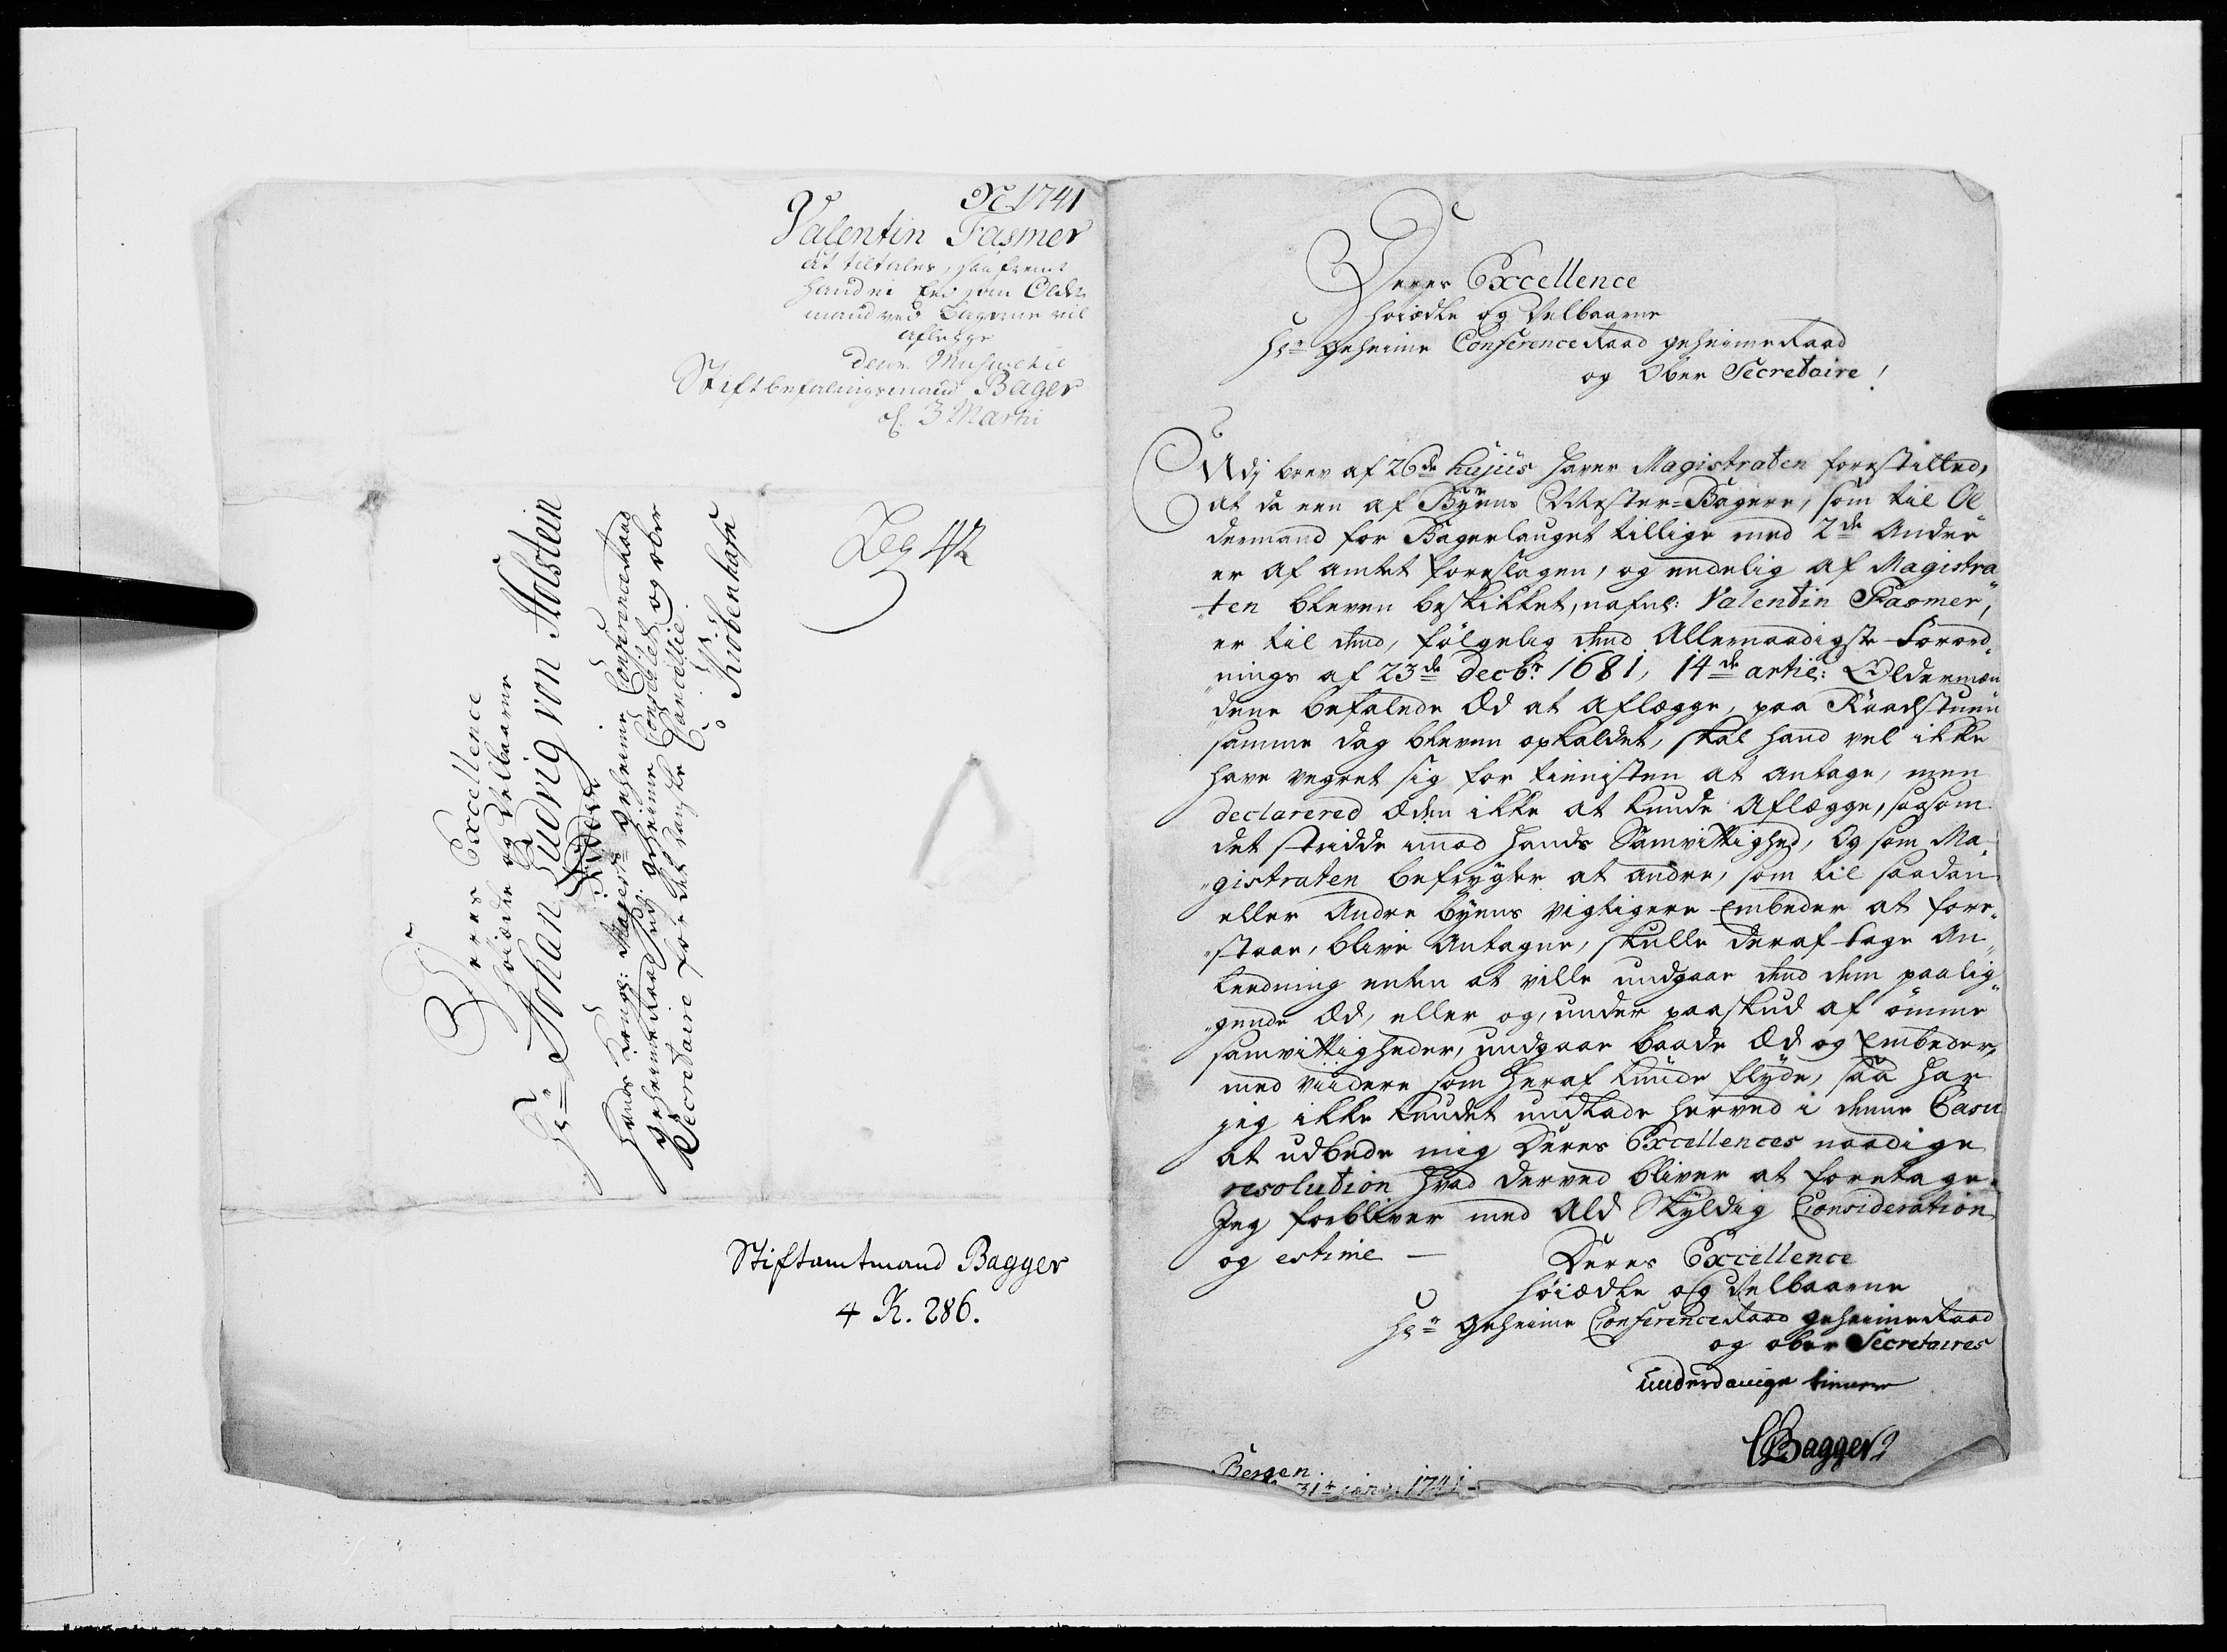 1741
Valentin Fasmer
at tiltales, saafremt
hand ei Eed som Older
mand ved Bagerne vil
aflegge
Stiftbefalingsmand Bager
3 Martii
Deres Excellence
høiædle og Velbaarne
Hr Johan Ludvig von Holstein
Ridder
Hans Kongl: Mayests geheime Conference Raad
geheime Raad udj geheime Conseilet og ober
Secretaire for det danske Cancellie
Kiøbenhafn
Stiftamtmand Bagger
4 K. 286.
Deres Excellence
høiædle og Velbaarne
Hr geheime Conference Raad geheime Raad
og Ober Secretaire!
Udj brev af 26de hujus haver Magistraten forestilled,
at da een af Byens Mester-Bagere, som til Ol
dermand for Bagerlauget tillige med 2de Andre
er af amtet foreslagen, og endelig af Magistra
ten bleven beskikket, nafnl: Valentin Fasmer,
er til dend, følgelig dend Allernaadigste Forord
nings af 23de Decbr 1681, 14de artic: Oldermæn
dene befalede Æd at aflægge, paa Raadstuen
samme dag bleven opkaldet, skal hand vel ikke
have vegret sig for tienisten at antage, men
declarered Æden ikke at kunde aflægge, saasom
det stridde imod hands Samvittighed, Og som Ma
gistraten befrygter at andre, som til saadan
eller Andre byens vigtigere Embeder at fore
staae, blive Antagne, skulle deraf tage An
leedning enten at ville undgaae dend dem paalig
gende Æd, eller og, under paaskud af ømme
samvittigheder, undgaae baade Æd og Embeder,
med viidere som heraf kunde flyde, saa har
jeg ikke kundet undlade herved i denne Casu
at udbede mig Deres Excellences naadige
resolution hvad derved bliver at foretage.
Jeg forbliver med Ald Skyldig Consideration
og estime —
Deres Excellence
høiædle og Velbaarne
Hr geheime Conference Raad geheime Raad
og ober Secretaires
underdanige tienere
CBagger
Bergen
31te janv: 1741